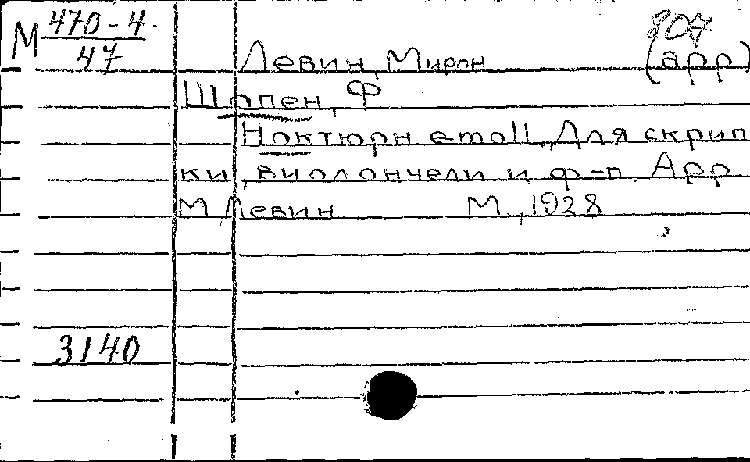 М 470-4
47
807
(арр)
Левин, Мирон
Шопен, Ф
Ноктюрн e moll. Для скрип
ки, виолончели и ф-п. Арр.
М. Левин М., 1928
3140